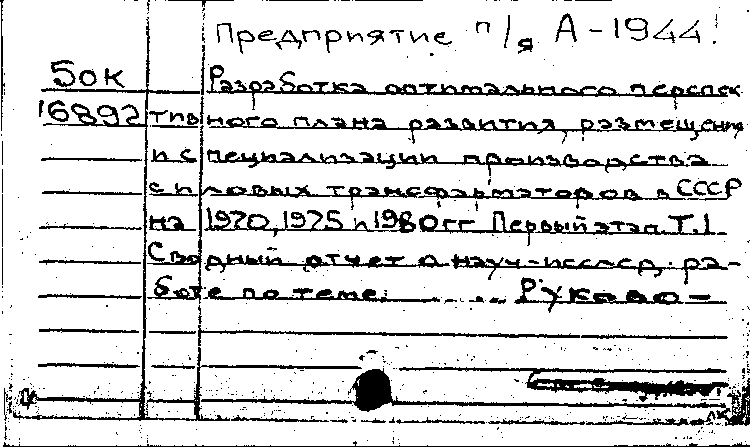 Предприятие п/я А-1944!
50к Разработка оптимального перспек
16892 тивного плана развития, размещения
и специализации производства
силовых трансформаторов в СССР
на 1970, 1975 и 1980 гг Первый этап. Т.1
Сводный отчет о науч-исслед. ра-
боте по теме: ..... Руково-